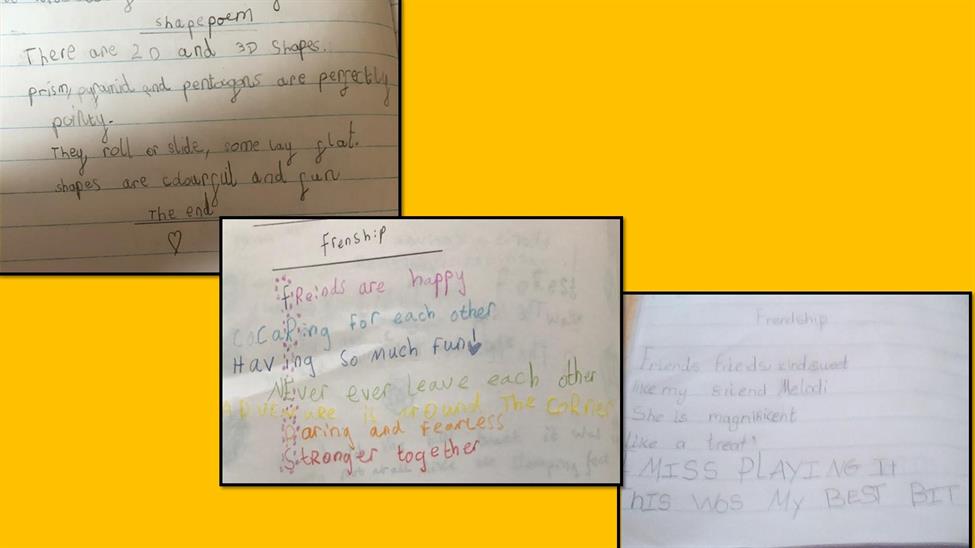 shapepoem
There are 2D and 3D shapes.
prism, pyramid and pentagons are perfectly
pointy.
They roll or slide, some lay flat.
shapes are colourful and fun
The end
frenship
fReinds are happy
CaRing for each other
Having so much fun!
NEver ever leave each other
is around The CoRner
Daring and fearless
Stronger together
Frendship
Friends frieds kind sweet
like my friend Melodi
She is magnificent
like a treat!
I MISS PLAYING It
ThIS WoS My BEST BIT